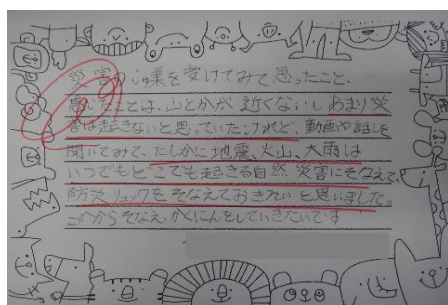 災害の授業を受けてみて思ったこと、
感じたことは、山とかが近くないしあまり災
害は起きないと思っていたけれど、動画や話しを
聞いてみて、たしかに地震、火山、大雨は
いつでもどこでも起きる自然災害にそなえて、
防災リュックをそなえておきたいと思いました。
これからそなえ、かくにんをしていきたいです